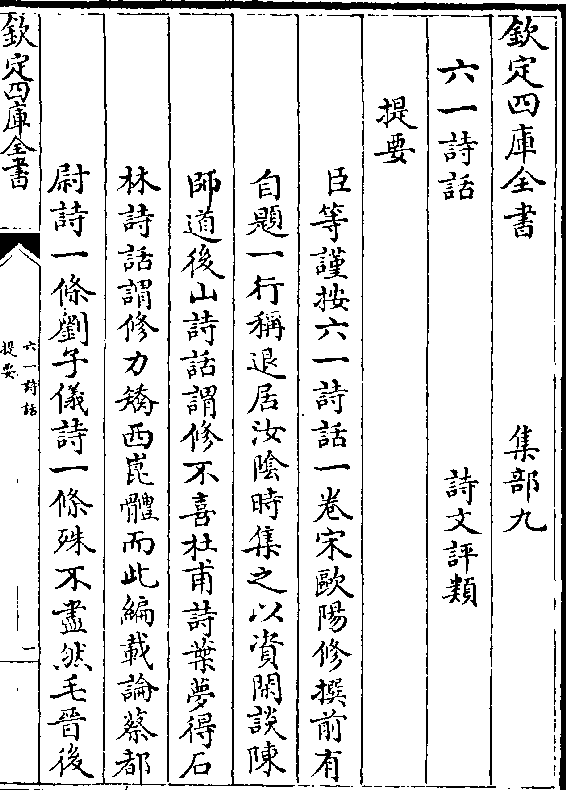 欽定四庫全書　集部九
六一詩話　詩文評類
提要
臣等謹按六一詩話一卷宋歐陽修撰前有
自題一行稱退居汝隂時集之以資閑談陳
師道後山詩話謂修不喜杜甫詩葉夢得石
林詩話謂修力矯西崑體而此編載論蔡都
尉詩一條劉子儀詩一條殊不盡然毛晉後
欽定四庫全書
六一詩話
提要
一